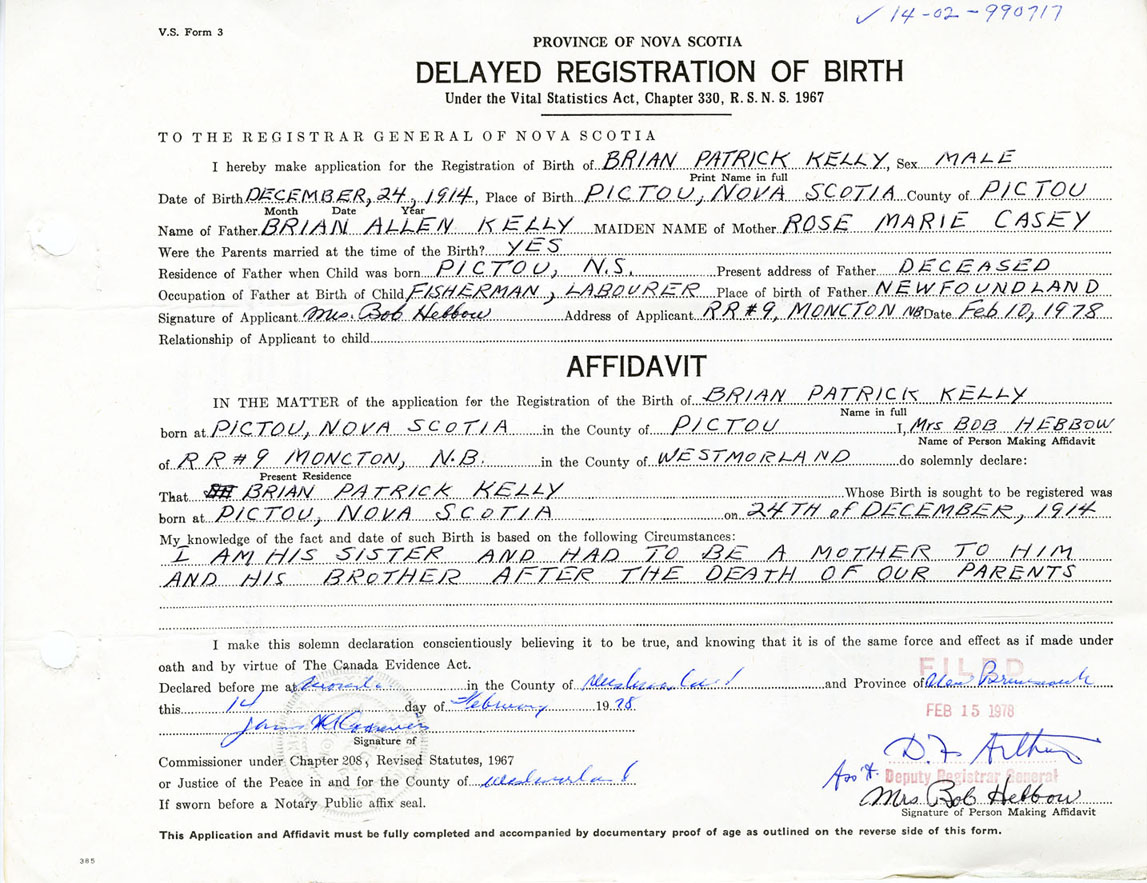 V.S. Form 3
✓ 14-02-990717
PROVINCE OF NOVA SCOTIA
DELAYED REGISTRATION OF BIRTH
Under the Vital Statistics Act, Chapter 330, R. S. N. S. 1967
TO THE REGISTRAR GENERAL OF NOVA SCOTIA
I hereby make application for the Registration of Birth of BRIAN PATRICK KELLY, Sex MALE
Print Name in full
Date of Birth DECEMBER, 24, 1914, Place of Birth PICTOU, NOVA SCOTIA County of PICTOU
Month Date Year
Name of Father BRIAN ALLEN KELLY MAIDEN NAME of Mother ROSE MARIE CASEY
Were the Parents married at the time of the Birth? YES
Residence of Father when Child was born PICTOU, N.S. Present address of Father DECEASED
Occupation of Father at Birth of Child FISHERMAN, LABOURER Place of birth of Father NEWFOUNDLAND
Signature of Applicant Mrs. Bob Hebbow Address of Applicant RR#9, MONCTON NB Date Feb 10, 1978
Relationship of Applicant to child
AFFIDAVIT
IN THE MATTER of the application for the Registration of the Birth of BRIAN PATRICK KELLY
Name in full
born at PICTOU, NOVA SCOTIA in the County of PICTOU I, Mrs BOB HEBBOW
Name of Person Making Affidavit
of RR#9 MONCTON, N.B. in the County of WESTMORLAND do solemnly declare:
Present Residence
That BRIAN PATRICK KELLY Whose Birth is sought to be registered was
born at PICTOU, NOVA SCOTIA on 24TH of DECEMBER, 1914
My knowledge of the fact and date of such Birth is based on the following Circumstances:
I AM HIS SISTER AND HAD TO BE A MOTHER TO HIM
AND HIS BROTHER AFTER THE DEATH OF OUR PARENTS
I make this solemn declaration conscientiously believing it to be true, and knowing that it is of the same force and effect as if made under
oath and by virtue of The Canada Evidence Act.
FILED
Declared before me at in the County of and Province of New Brunswick
this 14 day of February 1978
FEB 15 1978
Signature of
D.F. Arthur
Commissioner under Chapter 208, Revised Statutes, 1967
Ass't. Deputy Registrar General
or Justice of the Peace in and for the County of
Mrs Bob Hebbow
If sworn before a Notary Public affix seal.
Signature of Person Making Affidavit
This Application and Affidavit must be fully completed and accompanied by documentary proof of age as outlined on the reverse side of this form.
385